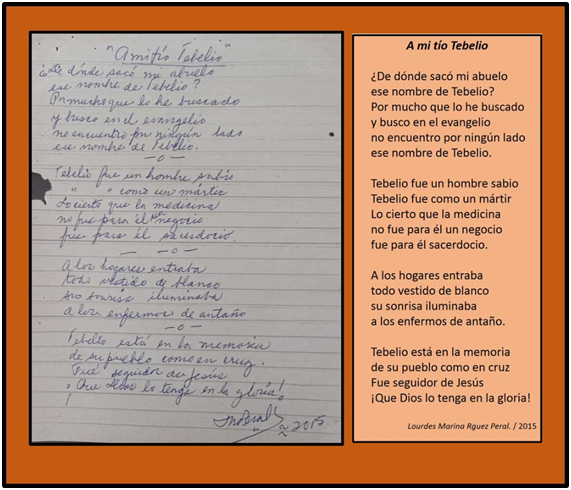 "A mi tío Tebelio"
¿De dónde sacó mi abuelo
ese nombre de Tebelio?
Por mucho que lo he buscado
y busco en el evangelio
no encuentro por ningún lado
ese nombre de Tebelio.
—o—
Tebelio fue un hombre sabio
" " como un mártir
Lo cierto que la medicina
no fue para él un negocio
fue para él sacerdocio.
— —o—
A los hogares entraba
todo vestido de blanco
su sonrisa iluminaba
a los enfermos de antaño
—o—
Tebelio está en la memoria
de su pueblo como en cruz.
Fué seguidor de Jesús
¡Que Dios lo tenga en la gloria!
2015
A mi tío Tebelio
¿De dónde sacó mi abuelo
ese nombre de Tebelio?
Por mucho que lo he buscado
y busco en el evangelio
no encuentro por ningún lado
ese nombre de Tebelio.
Tebelio fue un hombre sabio
Tebelio fue como un mártir
Lo cierto que la medicina
no fue para él un negocio
fue para él sacerdocio.
A los hogares entraba
todo vestido de blanco
su sonrisa iluminaba
a los enfermos de antaño.
Tebelio está en la memoria
de su pueblo como en cruz
Fue seguidor de Jesús
¡Que Dios lo tenga en la gloria!
Lourdes Marina Rguez Peral. / 2015